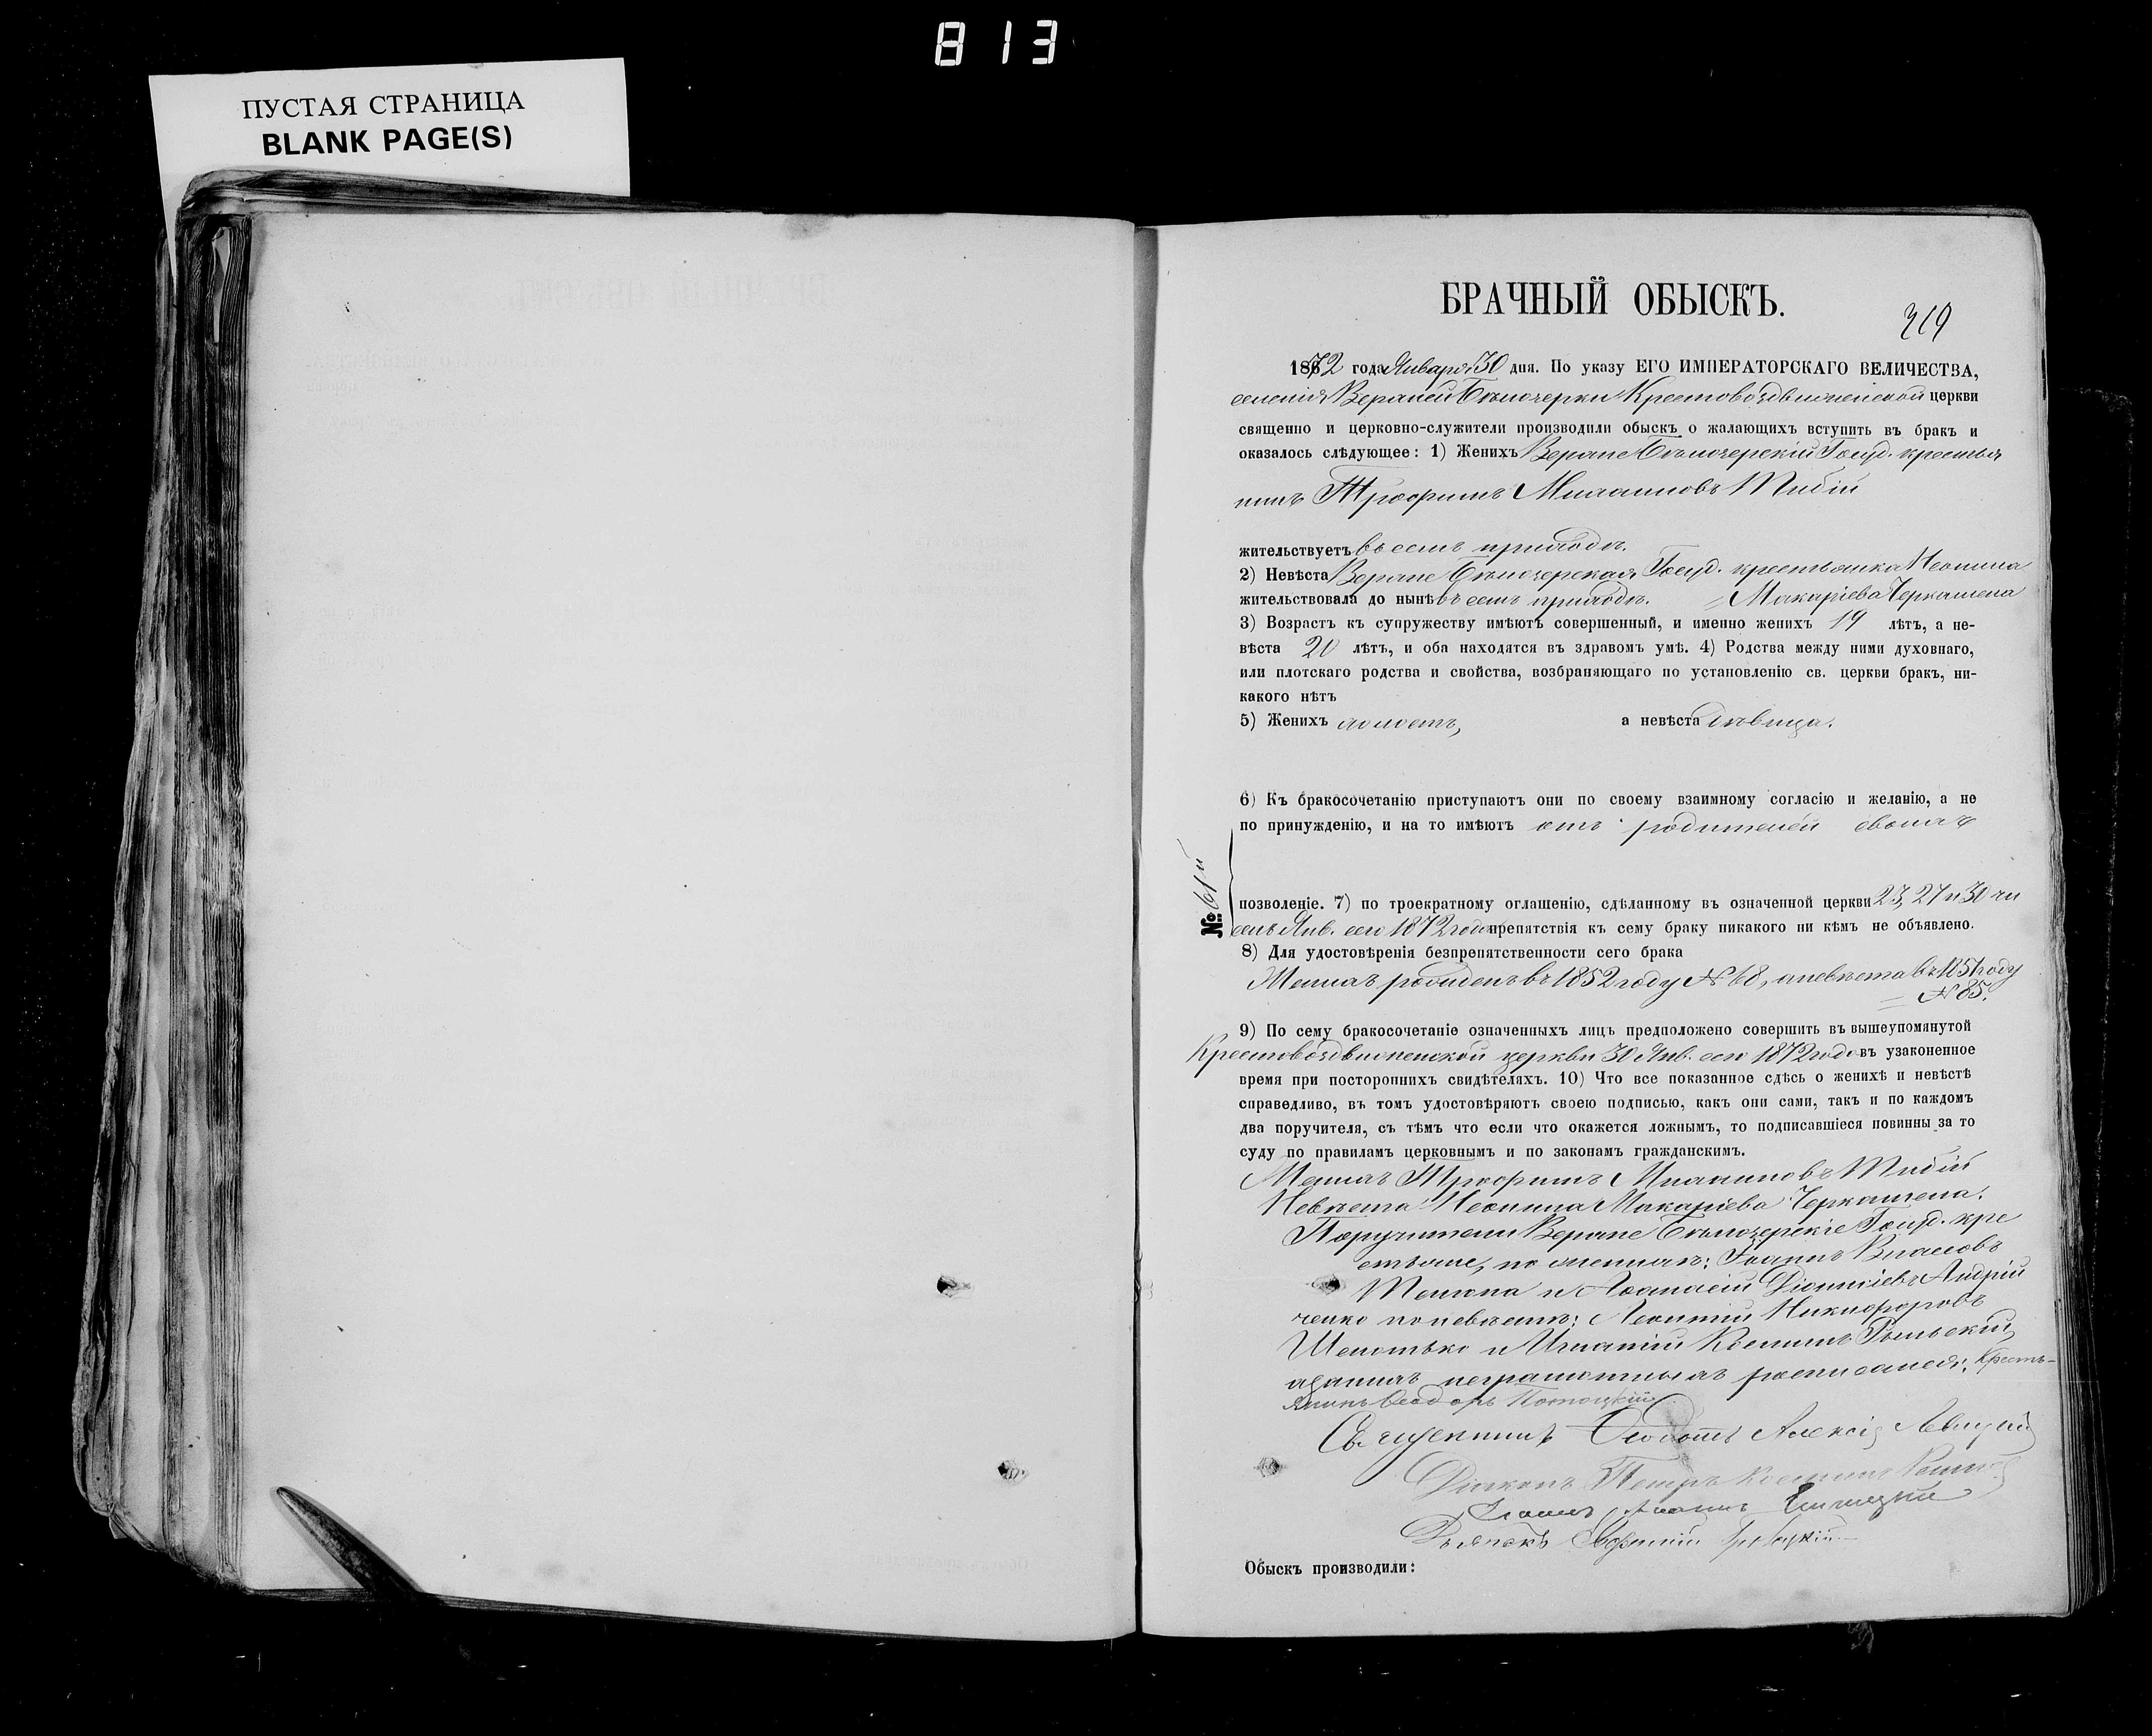 813
ПУСТАЯ СТРАНИЦА
BLANK PAGE(S)
БРАЧНЫЙ ОБЫСКЪ.
319
1872 года Января 30 дня. По указу ЕГО ИМПЕРАТОРСКАГО ВЕЛИЧЕСТВА,
селенія Верхней Бѣлозерки Крестовоздвиженской церкви
священно и церковно-служители производили обыскъ о жалающихъ вступить въ бракъ и
оказалось слѣдующее: 1) Женихъ Верхне Бѣлозерскій Госуд. крестья
нинъ Трофимъ Михаиловъ
жительствуетъ въ семъ приходѣ.
2) Невѣста Верхне Бѣлозерская Госуд. крестьянка Неонила
жительствовала до нынѣ въ семъ приходѣ. = Макаріева Черкашена
3) Возрастъ къ супружеству имѣютъ совершенный, и именно женихъ 19 лѣтъ, а не-
вѣста 20 лѣтъ, и оба находятся въ здравомъ умѣ. 4) Родства между ними духовнаго,
или плотскаго родства и свойства, возбраняющаго по установленію св. церкви бракъ, ни-
какого нѣтъ
5) Женихъ холостъ, а невѣста дѣвица.
6) Къ бракосочетанію приступаютъ они по своему взаимному согласію и желанію, а не
по принужденію, и на то имѣютъ отъ родителей своихъ
№ 61й
позволеніе. 7) по троекратному оглашенію, сдѣланному въ означенной церкви 23, 27 и 30 чи
селъ Янв. сего 1872 года препятствія къ сему браку никакого ни кѣмъ не объявлено.
8) Для удостовѣренія безпрепятственности сего брака
Женихъ рожденъ въ 1852 году № 68, а невѣста въ 1851 году
= № 85.
9) По сему бракосочетаніе означенныхъ лицъ предположено совершить въ вышеупомянутой
Крестовоздвиженской церкви 30 Янв. сего 1872 года въ узаконенное
время при постороннихъ свидѣтеляхъ. 10) Что все показанное сдѣсь о женихѣ и невѣстѣ
справедливо, въ томъ удостовѣряютъ своею подписью, какъ они сами, такъ и по каждомъ
два поручителя, съ тѣмъ что если что окажется ложнымъ, то подписавшіеся повинны за то
суду по правиламъ церковнымъ и по законамъ гражданскимъ.
Женихъ Трофимъ Михаиловъ
Невѣста Неонила Макаріева Черкашена.
Поручители Верхне Бѣлозерскіе Госуд. кре
стьяне, по женихѣ: Іоаннъ Власовъ
и Аѳанасій Діонисіевъ Андрій
ченко по невѣстѣ: Леонтій Никифоровъ
и Игнатій Косминъ
а за нихъ неграмотныхъ росписался: Кресть-
янинъ Ѳеодоръ Потоцкій
Священникъ Алексій Левицкій
Діаконъ Петръ
Іоаннъ
Дьячокъ
Обыскъ производили: